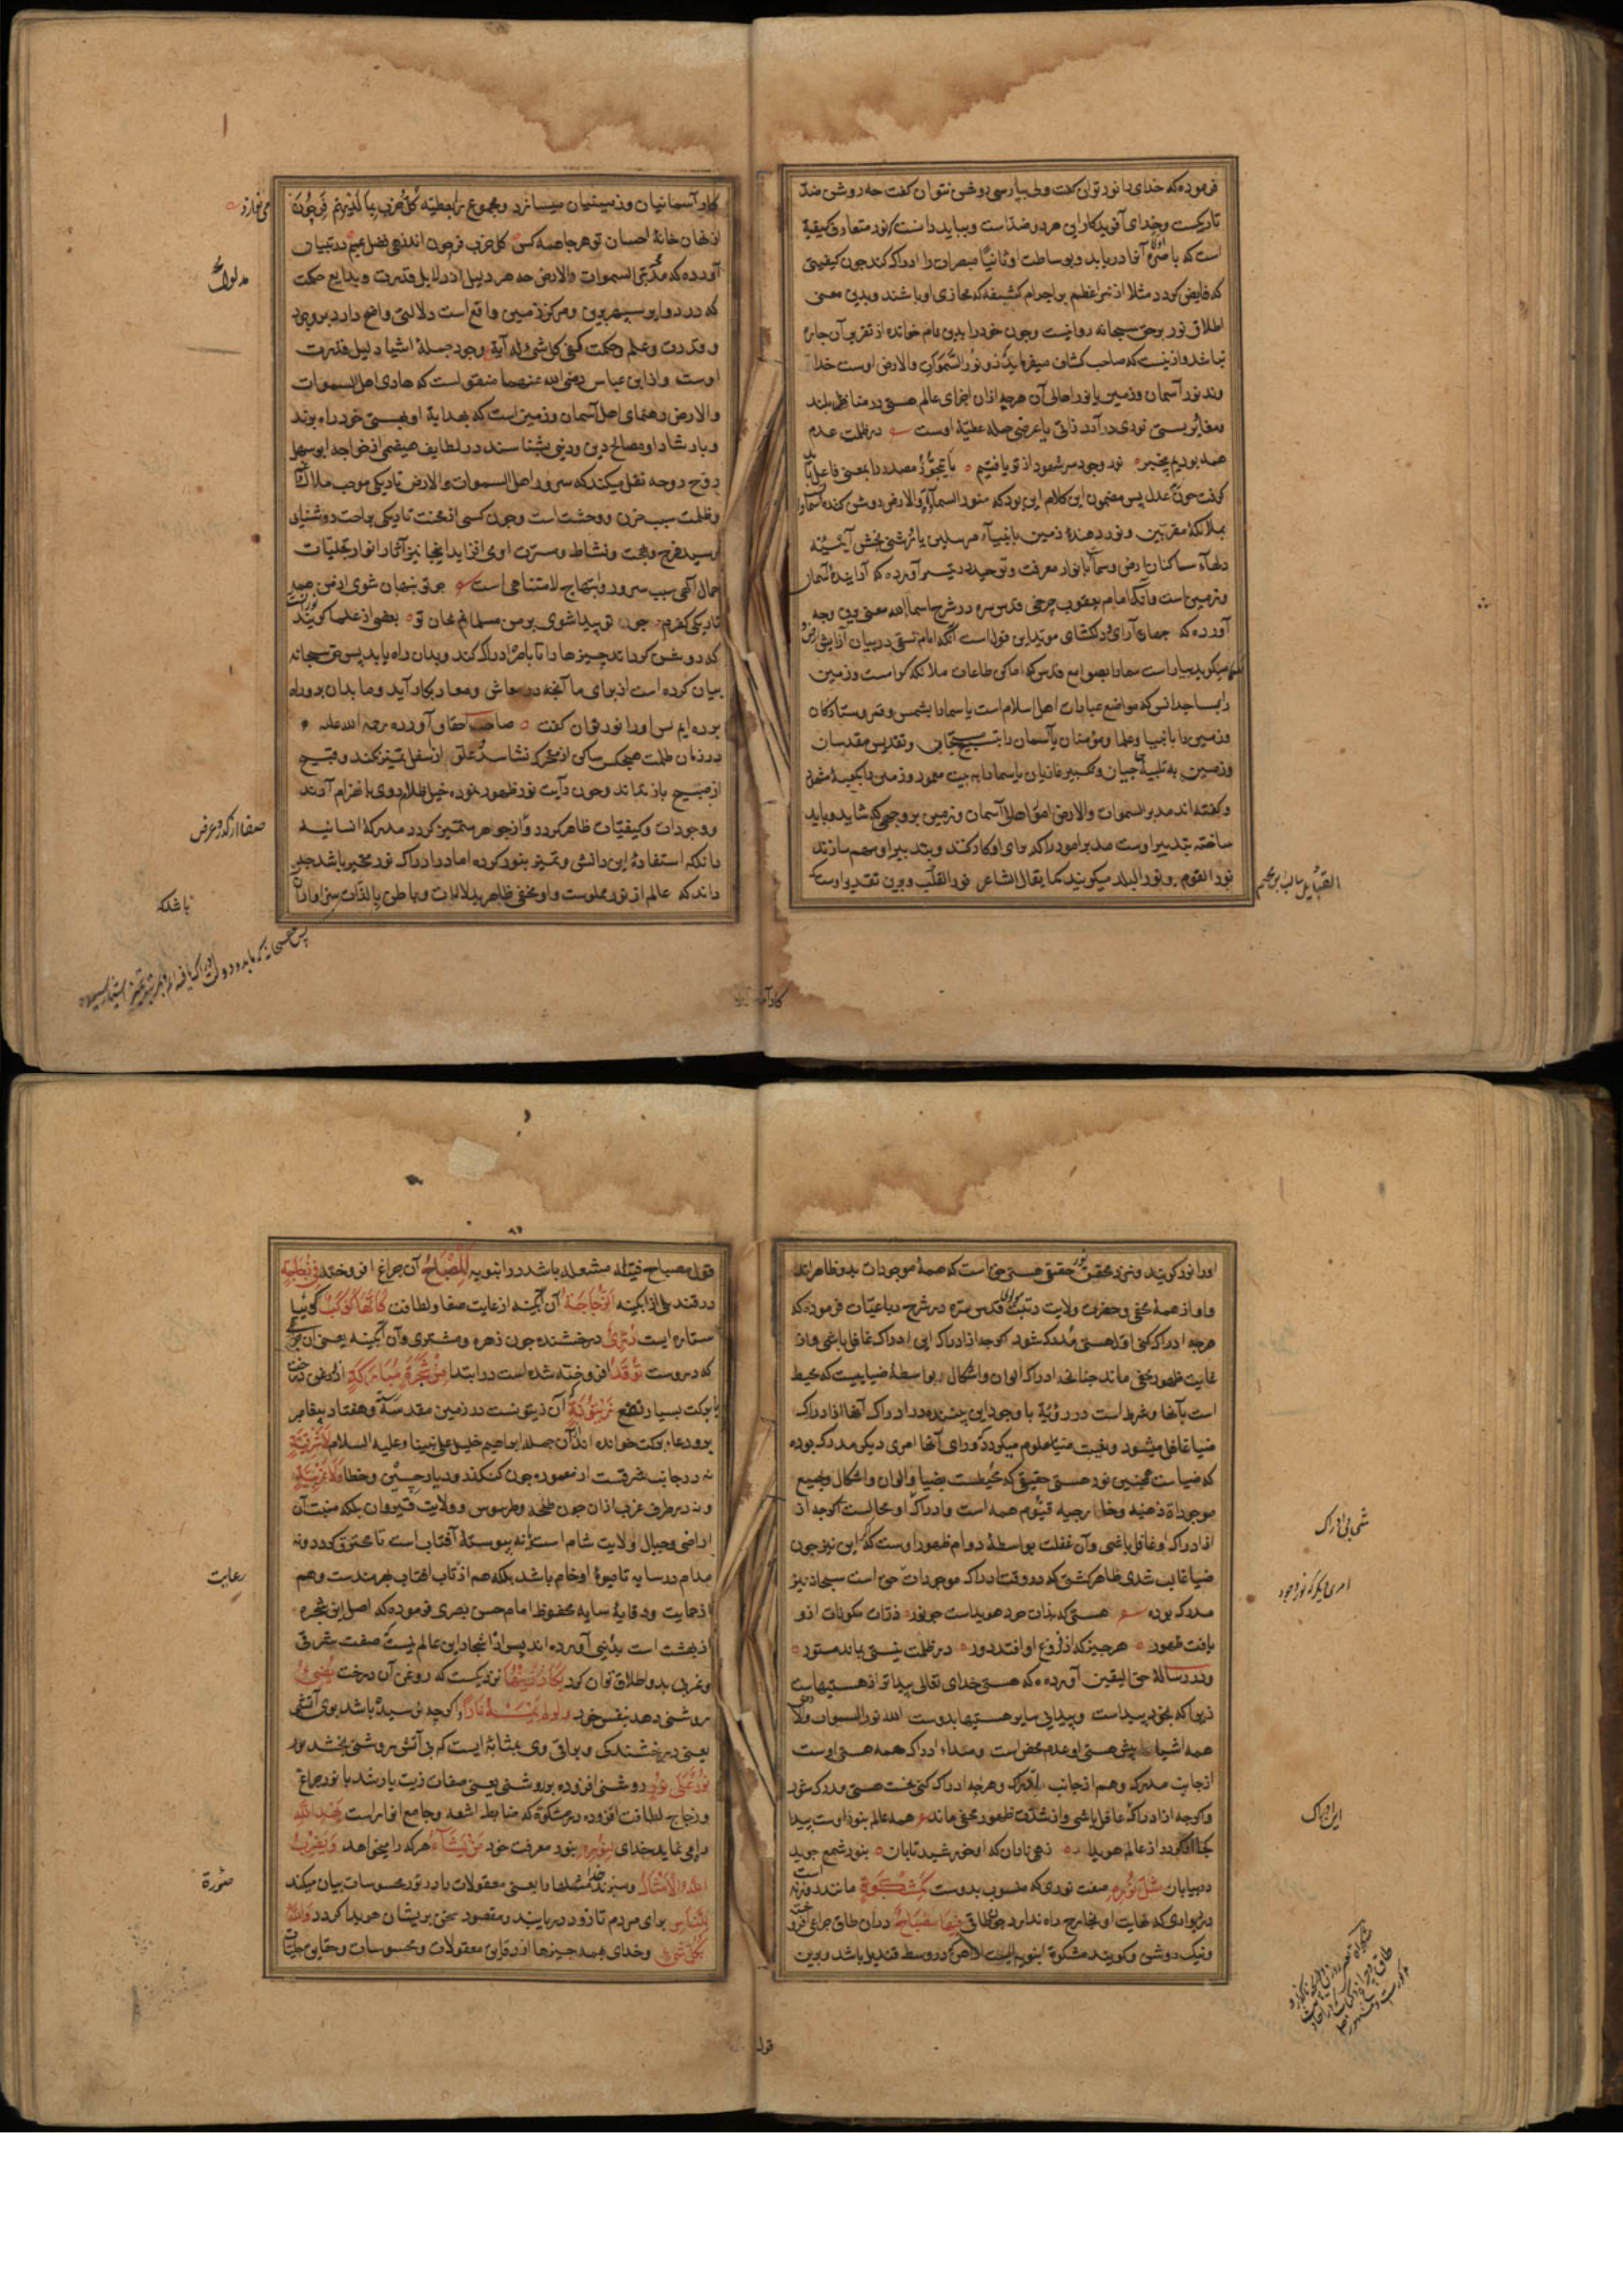 فرموده که خدای را نور توان گفت ولی بپارسی روشن نتوان گفت چه روشن ضد
تاریکست وخدای آفریدکار این هر دو ضداست وبباید دانست که نور متعارف کیفیة
است که باصره اولا آنرا دریابد وبوساطت او ثانیا مبصرات را ادراک کند چون کیفیتی
که فایض کردد مثلا از نیر اعظم بر اجرام کثیفه که محاذی او باشند وبدین معنی
اطلاق نور برحق سبحانه روا نیست وچون خود را بدین نام خوانده از تقریر آن چاره
نباشد وازینست که صاحب کشاف میفرماید که ذو نور السموات والارض اوست خدا
وند نور آسمان وزمین یا نور اهالی آن هرچه از اجزای عالم هستی در مناظر بلند
ومغایر پستی نوری درآید ذاتی یا عرضی جمله عطیه اوست در ظلمت عدم
همه بودیم بیخبر نور وجود سر شهود از تو یافتیم یا بتجوز مصدر را بمعنی فاعل باید
کرفت چون عدل پس مضمون این کلام این بود که منور السماوات والارض روشن کننده آسمانها
بملائکه مقربین ونور دهنده زمین بانبیاء مرسلین یا روشنی بخش آیینه
دلهاء ساکنان ارض وسما بانوار معرفت وتوحید در تیسیر آورده که آراینده آسمان
وزمین است وآنکه امام یعقوب چرخی قدس سره در شرح اسماالله معنی وی وجه
آورده که جهان آرای ودلکشای موید این قول است آنکه امام نسفی در بیان آرایش ارض و
سما میکوید بیاراست سما را بصوامع قدس که اماکن طاعات ملائکه کراست وزمین
را بمساجد انس که مواضع عبادات اهل اسلام است یا سما را بشمس وقمر وستارکان
وزمین را بانبیا وعلما ومؤمنان یا آسمان را بتسبیح مسبحان وتقدیس مقدسان
وزمین به تلبیه حاجیان وتکبیر غازیان یا سما را به بیت معمور وزمین را بکعبه مشهور
وکفته اند مدبر السموات والارض امور اهالی آسمان وزمین بر وجهی که شاید وباید
ساخته بتدبیر اوست مدبر امور را که برای او کار کنند وبتدبیر او مهم سازند
نور القوم ونور البلد میکویند کما یقال الشاعر نور القبایل وبرین تقدیر اوست
کار آسمانیان وزمینیان میسازد ومجموع را بعطیه کل حزب بما لدیهم فرحون
از نهان خانه احسان تو هرجا همه کس کل حزب فرحون اند زهی فضل عمیم در تبیان
آورده که مدلول السموات والارض چه هر دلیل از دلایل قدرت وبدایع حکمت
که در دوایر سپهر برین ومرکز زمین واقع است دلالتی واضح دارد بر وجود
وقدرت وعلم وحکمت ففی کل شئ له آیة وجود جمله اشیا دلیل قدرت
اوست واز ابن عباس رضی الله عنهما منقول است که هادی اهل السموات
والارض رهنمای اهل آسمان وزمین است که بهدایة او بهستی خود راه بردند
وبارشاد او مصالح دین ودنیی بشناسند در لطایف
از خواجه ابو سهل
نقل میکند که سرور اهل السموات والارض تاریکی موجب ملال
وظلمت سبب حزن ووحشت است وچون کسی از محنت تاریکی براحت روشنایی
رسید فرح وبهجت ونشاط ومسرت اوی افزاید اینجا نیز آثار انوار تجلیات
جمال الهی سبب سرور وابتهاج لامتناهی است چو تو پنهان شوی از من همه
تاریکی کفرم چو تو پیدا شوی بر من مسلمانم بجان تو بعضی از علما کویند نور آنست
که روشن کرداند چیزها را تا باصره ادراک کند وبدان راه یابد پس حق سبحانه
بیان کرده است از برای ما آنچه در معاش ومعاد بکار آید وما بدان بر وراه
برده ایم پس اورا نور توان کفت صاحب احقاق آورده رحمة الله علیه
در زمان ظلمت هیچ کس ساکن از متحرک نشناسد وعلو از سفل تمییز نکند وقبیح
از صبیح باز نداند وچون رایت نور ظهور نمود خیل ظلام روی بانهزام آورند
ووجودات وکیفیات ظاهر کردد واز جواهر متمیز کردد مدرکة انسانیه
داند که استفاده این دانش وتمییز بنور کرده اما در ادراک نور متحیر باشد چه
داند که عالم از نور مملوست واو مخفی ظاهر بدلالات وباطن بالذات پس اورا
مدلول
صفا از کدر وعرض
باشد که
کار آسما
اورا نور کویند ونزد محققین نور حقیقی هستی حق است که همه موجودات بدو ظاهر اند
واو از همه مخفی وحضرت ولایت رتبت مولانا قدس سره در شرح رباعیات فرموده که
هرچه ادراک کنی اولا هستی مدرک شود اکرچه از ادراک این ادراک غافل باشی واز
غایت ظهور مخفی ماند چنانچه ادراک الوان واشکال بواسطه ضیاییست که محیط
است بآنها وشرط است در رؤیة با وجود این بیننده در ادراک آنها از ادراک
ضیا غافل میشود وبغیبت ضیا معلوم میکردد که ورای آنها امری دیکر مدرک بوده
که ضیاست همچنین نور هستی حقیقی که محیطست بضیا والوان واشکال وبجمیع
موجوداة ذهنیه وخارجیه قیوم همه است وادراک او محالست اکرچه از
از ادراک او غافل باشی وآن غفلت بواسطه دوام ظهور اوست که اکر این نیز چون
ضیا غایب شدی ظاهر کشتی که در وقت ادراک موجودات حق است سبحانه نیز
مدرک بوده هستی که بذات خود هویداست چو نور ذرات مکونات ازو
یافت ظهور هرچیز که از فروغ او افتد دور در ظلمت نیستی بماند مستور
ودر رساله حق الیقین آورده که هستی خدای تعالی پیداتر از هستیهاست
زیرا که بخود پیداست وپیدایی سایر هستیها بدوست الله نور السموات والارض
همه اشیا پیش هستی او عدم محض است ومبداء ادراک همه هستی اوست
از جانب مدرِک وهم از جانب مدرَک وهرچه ادراک کنی نخست هستی مدرک شود
واکرچه از ادراک غافل باشی واز شدت ظهور مخفی ماند همه عالم بنور اوست پیدا
کجا او کردد از عالم هویدا زهی نادان که او خورشید تابان بنور شمع جوید
در بیابان مثل نوره صفت نوری که منسوب بدوست کمشکوة مانند روزنه است
در دیواری که نهایت او بخارج راه ندارد چون طاقی فیها مصباح در آن طاق چراغی افروخته
ونیک روشن وکویند مشکوة انبوبه ایست که در وسط قندیل باشد وبرین
قول مصباح فتیله مشتعله باشد در انبوبه المصباح آن چراغ افروخته فی زجاجة
در قندیلی از آبکینه الزجاجة آن آبکینه از غایت صفا ولطافت کانها کوکب کوئیا
ستاره ایست دری درخشنده چون زهره ومشتری وآن آبکینه یعنی آن چراغی
که دروست توقد افروخته شده است در ابتدا من شجرة مبارکة از روغن درخت
با برکت بسیار نفع زیتونة آن زیتونست در زمین مقدسه وهفتاد پیغامبر
برو دعاء برکت خوانده اند از آن جمله ابراهیم خلیل علی نبینا وعلیه السلام لا شرقیة
نه در جانب شرقست از معموره چون کنکدز ودیار چین وخطا ولا غربیة
ونه در طرف غرب از آن چون طنجه وطرسوس وولایت قیروان بلکه منبت آن
اراضی وجبال ولایت شام است یا نه پیوسته آفتاب است تا محترق کردد ونه
مدام در سایه تا میوه او خام باشد بلکه هم از تاب آفتاب بهره مندست وهم
از حمایت ووقایة سایه محفوظ امام حسن بصری فرموده که اصل این شجره
از بهشت است بدنیی آورده اند پس از اشجار این عالم نیست که صفت شرقی
وغربی بدو اطلاق توان کرد یکاد زیتها نزدیکست که روغن آن درخت یضیء
روشنی دهد بنفس خود ولو لم تمسسه نار واکرچه نرسیده باشد بوی آتشی
یعنی درخشندکی وبراقی وی بمثابه ایست که بی آتش روشنی بخشد نور
نور علی نور روشنی افزوده بر روشنی یعنی صفای زیت یار شد با نور چراغ
وزجاج لطافت افزوده در مشکوة که ضابط اشعه وجامع انوار است یهدی الله
راه می نماید خدای لنوره بنور معرفت خود من یشاء هرکه را میخواهد ویضرب
الله الامثال ومیزند خدا مثلها را یعنی معقولات را در صورة محسوسات بیان میکند
للناس برای مردم تا زود دریابند ومقصود سخن بریشان هویدا کردد والله
بکل شیء وخدای همه چیزها از دقایق معقولات ومحسوسات وحقایق جلیات
رعایت
صورة
شمایی ادراک
امری دیکر که نور وجود
این ادراک
قول